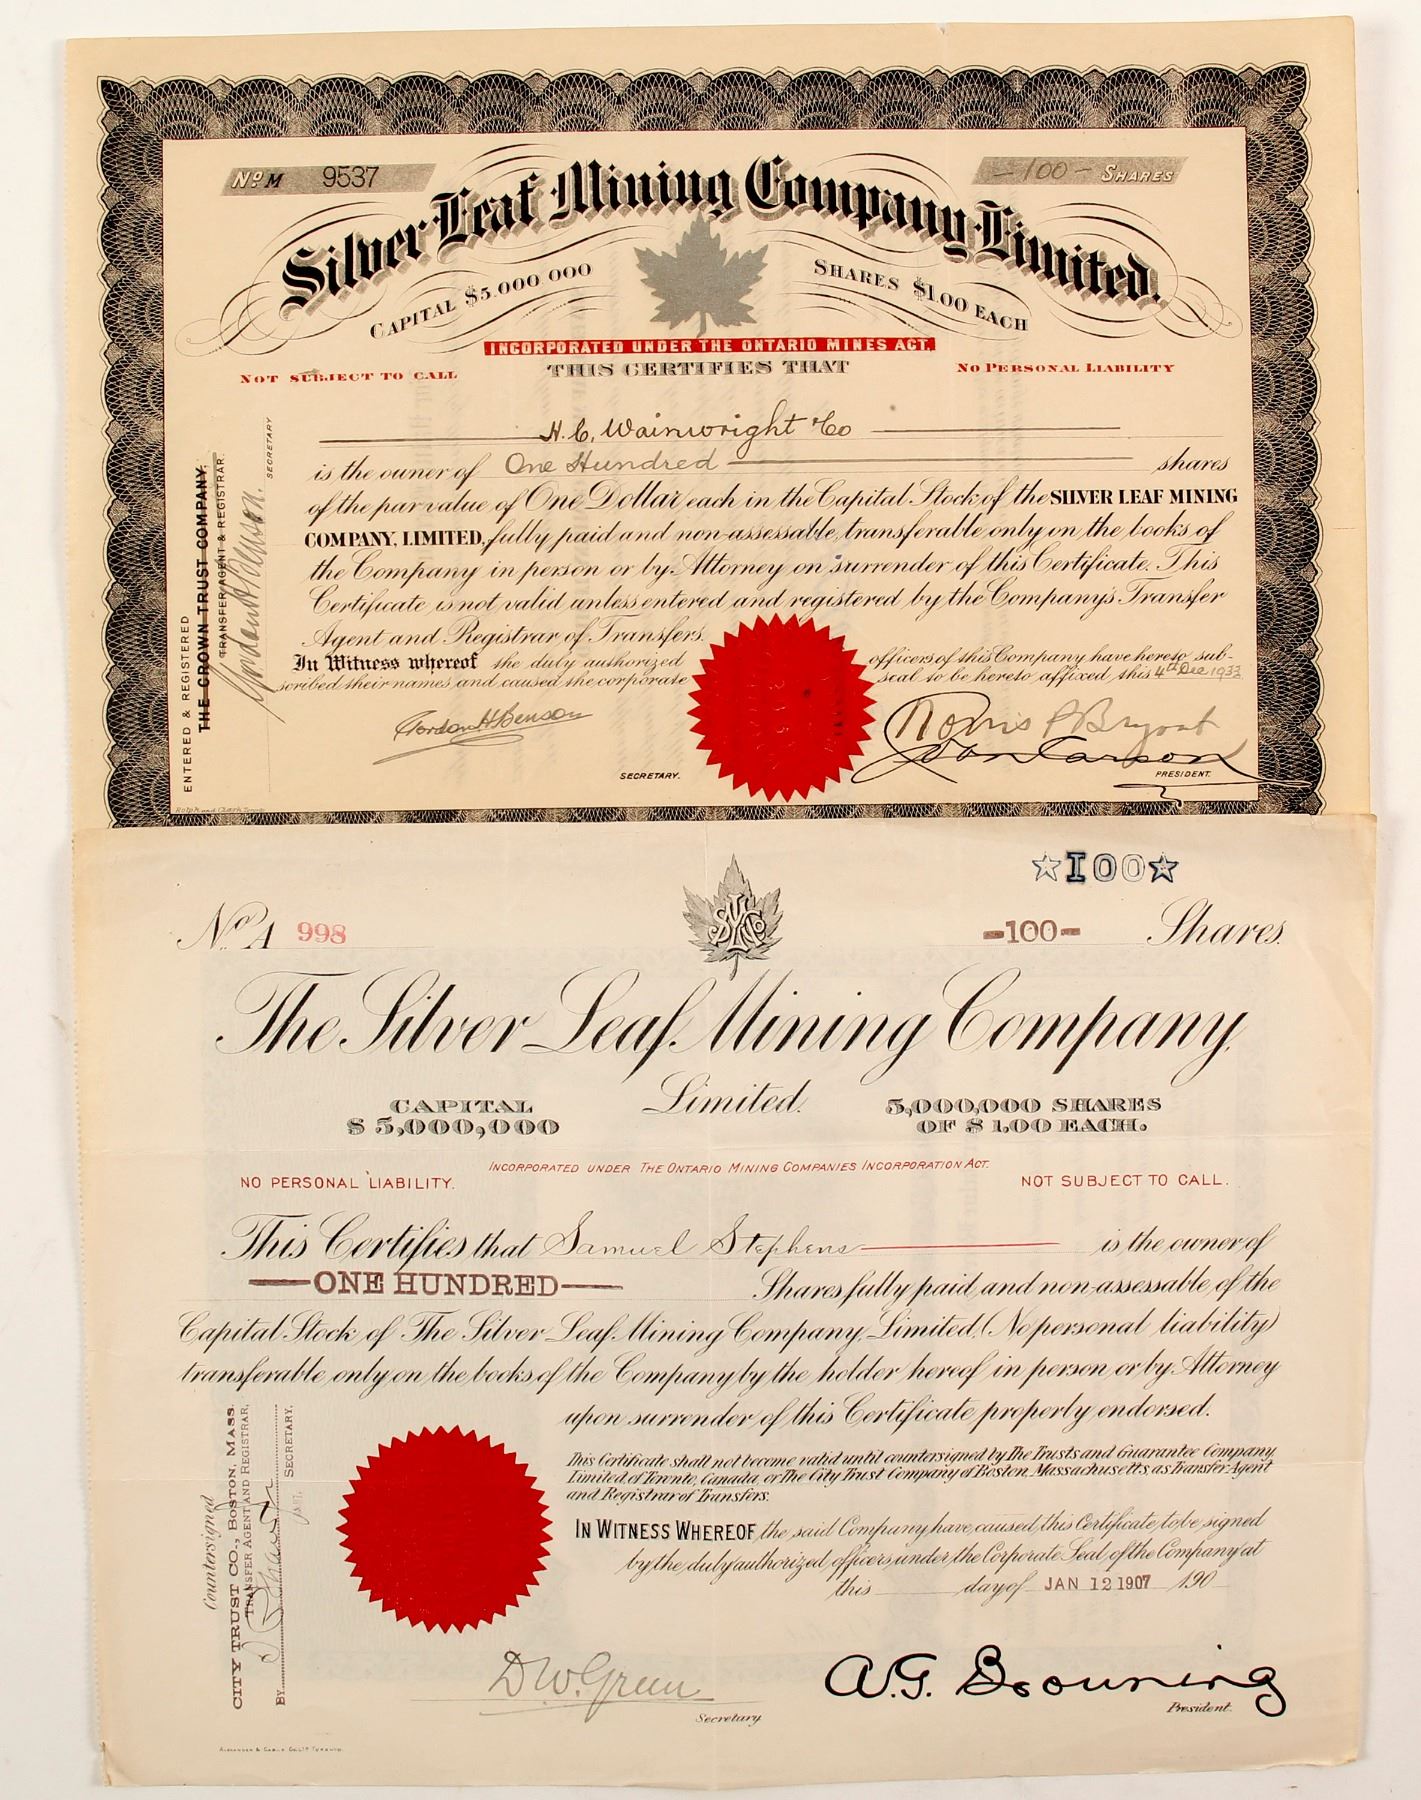 No M 9537
-100- SHARES
Silver Leaf Mining Company, Limited.
CAPITAL $5.000 000
SHARES $1.00 EACH
INCORPORATED UNDER THE ONTARIO MINES ACT.
NOT SUBJECT TO CALL
THIS CERTIFIES THAT
NO PERSONAL LIABILITY
H. C. Wainwright & Co
is the owner of One Hundred shares
of the par value of One Dollar each in the Capital Stock of the SILVER LEAF MINING
COMPANY, LIMITED, fully paid and non-assessable, transferable only on the books of
the Company in person or by Attorney on surrender of this Certificate. This
Certificate is not valid unless entered and registered by the Company's Transfer
Agent and Registrar of Transfers.
In Witness whereof the duly authorized officers of this Company have hereto sub-
scribed their names and caused the corporate seal to be hereto affixed this 4th Dec 1933
Gordon H Benson
SECRETARY.
Norris P Bryant
Don Carson
PRESIDENT.
ENTERED & REGISTERED
THE CROWN TRUST COMPANY,
TRANSFER AGENT & REGISTRAR.
SECRETARY
Rolph and Clark Toronto
No. A 998
☆100☆
-100- Shares.
SLMCo
The Silver Leaf Mining Company,
Limited.
CAPITAL
$5,000,000
5,000,000 SHARES
OF $1.00 EACH.
INCORPORATED UNDER THE ONTARIO MINING COMPANIES INCORPORATION ACT.
NO PERSONAL LIABILITY.
NOT SUBJECT TO CALL.
This Certifies that Samuel Stephens is the owner of
ONE HUNDRED Shares fully paid and non-assessable of the
Capital Stock of The Silver Leaf Mining Company, Limited, (No personal liability)
transferable only on the books of the Company by the holder hereof in person or by Attorney
upon surrender of this Certificate properly endorsed.
This Certificate shall not become valid until countersigned by The Trusts and Guarantee Company,
Limited, of Toronto, Canada, or The City Trust Company of Boston, Massachusetts, as Transfer Agent
and Registrar of Transfers.
IN WITNESS WHEREOF the said Company have caused this Certificate to be signed
by the duly authorized officers under the Corporate Seal of the Company at
this day of JAN 12 1907 190
Countersigned
CITY TRUST CO., BOSTON, MASS.
TRANSFER AGENT AND REGISTRAR,
By
SECRETARY.
D. W. Green
Secretary
A. G. Browning
President.